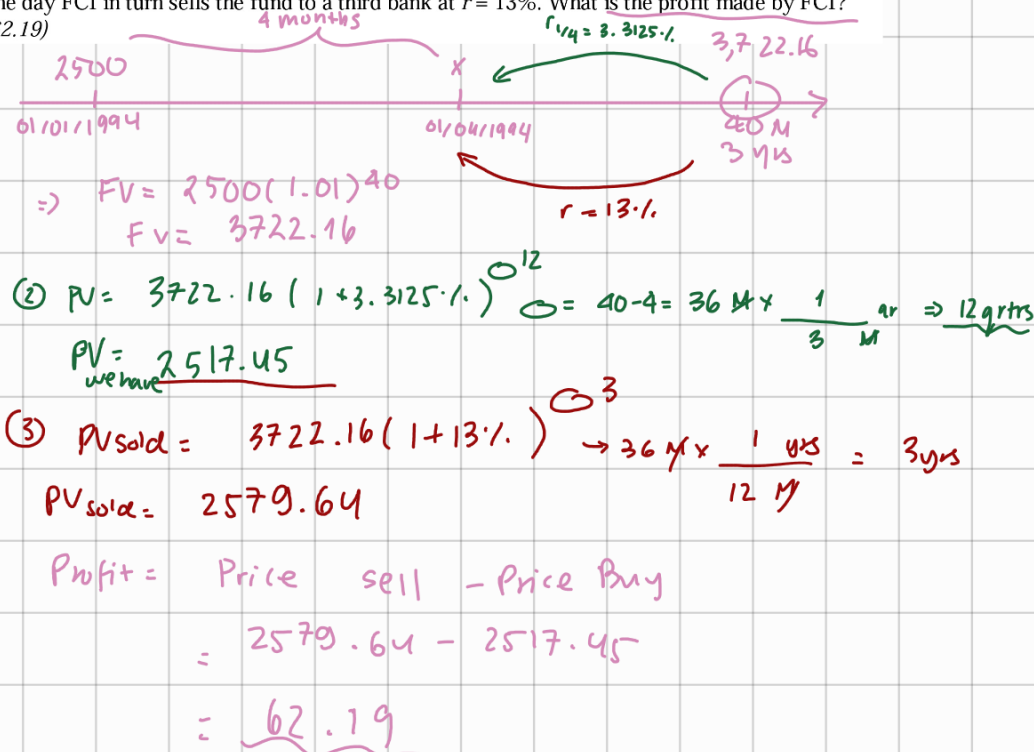 ne day FCI in turn sells the fund to a third bank at r = 13%. What is the profit made by FCI?
2.19)
4 months
r1/4 = 3.3125%
3,722.16
2500
x
01/01/1994
01/04/1994
40 M
3 yrs
=> FV = 2500(1.01)40
FV = 3722.16
r = 13%
(2) PV = 3722.16 (1+3.3125%) 12
= 40-4 = 36 M x 1/3 qr M => 12 qrtrs
PV = 2517.45
we have
(3) PVsold = 3722.16(1+13%) 3
→ 36 M x 1 yrs/12 M = 3yrs
PVsold = 2579.64
Profit = Price sell - Price Buy
= 2579.64 - 2517.45
= 62.19